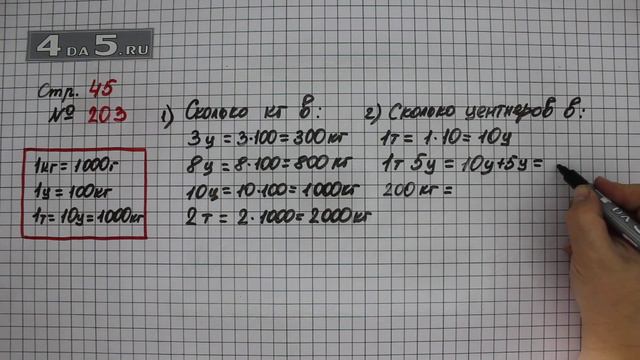 4DA5.RU
Стр. 45
№ 203
1кг = 1000г
1ц = 100кг
1т = 10ц = 1000кг
1) Сколько кг в:
3ц = 3·100 = 300кг
8ц = 8·100 = 800кг
10ц = 10·100 = 1000кг
2т = 2·1000 = 2000кг
2) Сколько центнеров в:
1т = 1·10 = 10ц
1т 5ц = 10ц+5ц =
200кг =